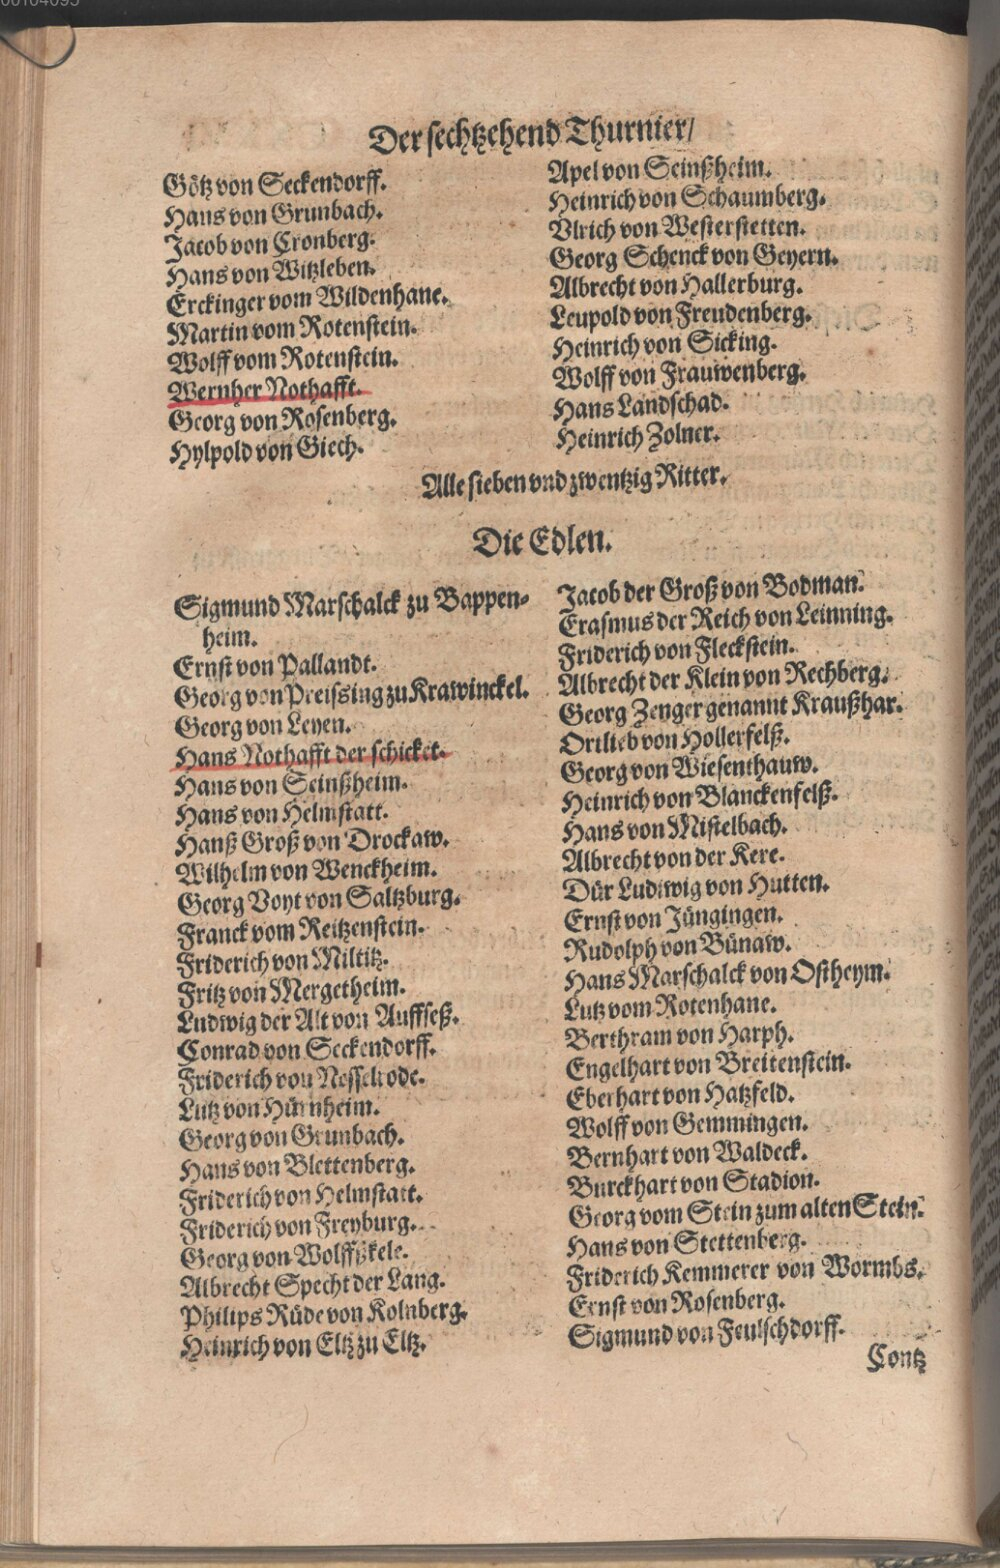 00104095
Der sechtzehend Thurnier/
Götz von Seckendorff.
Hans von Grunbach.
Jacob von Cronberg.
Hans von Witzleben.
Erckinger vom Wildenhane.
Martin vom Rotenstein.
Wolff vom Rotenstein.
Wernher Nothafft.
Georg von Rosenberg.
Hylpold von Giech.
Apel von Seinßheim.
Heinrich von Schaumberg.
Vlrich von Westerstetten.
Georg Schenck von Geyern.
Albrecht von Hallerburg.
Leupold von Freudenberg.
Heinrich von Sicking.
Wolff von Frauwenberg.
Hans Landschad.
Heinrich Zolner.
Alle sieben vnd zwentzig Ritter.
Die Edlen.
Sigmund Marschalck zu Bappen-
heim.
Ernst von Pallandt.
Georg von Preissing zu Krawinckel.
Georg von Leyen.
Hans Nothafft der schicket.
Hans von Seinßheim.
Hans von Helmstatt.
Hanß Groß von Drockaw.
Wilhelm von Wenckheim.
Georg Voyt von Saltzburg.
Franck vom Reitzenstein.
Friderich von Miltitz.
Fritz von Mergetheim.
Ludwig der Alt von Auffseß.
Conrad von Seckendorff.
Friderich von Nesselrode.
Lutz von Hürnheim.
Georg von Grunbach.
Hans von Blettenberg.
Friderich von Helmstatt.
Friderich von Freyburg.
Georg von Wolffßkele.
Albrecht Specht der Lang.
Philips Rüde von Kolnberg.
Heinrich von Eltz zu Eltz.
Jacob der Groß von Bodman.
Erasmus der Reich von Leinning.
Friderich von Fleckstein.
Albrecht der Klein von Rechberg.
Georg Zenger genannt Kraußhar.
Ortlieb von Hollerfelß.
Georg von Wiesenthauw.
Heinrich von Blanckenfelß.
Hans von Mistelbach.
Albrecht von der Kere.
Dür Ludwig von Hutten.
Ernst von Jüngingen.
Rudolph von Bünaw.
Hans Marschalck von Ostheym.
Lutz vom Rotenhane.
Berthram von Harph.
Engelhart von Breitenstein.
Eberhart von Hatzfeld.
Wolff von Gemmingen.
Bernhart von Waldeck.
Burckhart von Stadion.
Georg vom Stein zum alten Stein.
Hans von Stettenberg.
Friderich Kemmerer von Wormbs.
Ernst von Rosenberg.
Sigmund von Feulschdorff.
Contz